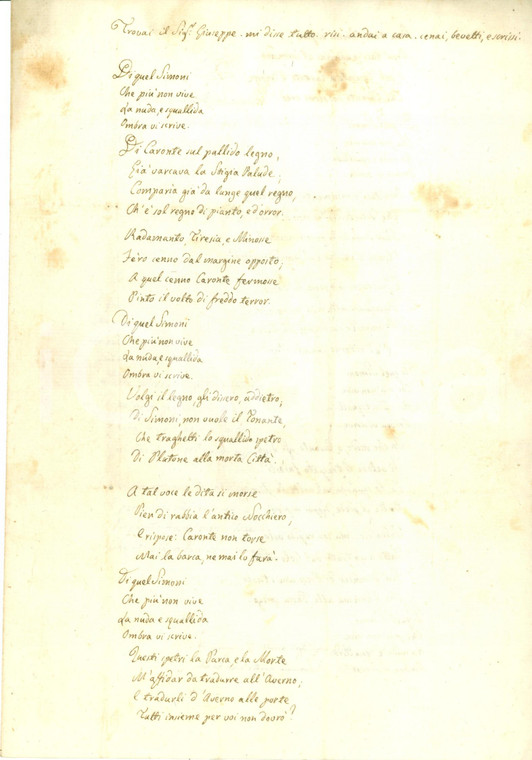 Trovai il Sig.r Giuseppe. mi disse tutto. risi. andai a casa. cenai, bevetti, e scrissi.
Di quel Simoni
Che più non vive
La nuda, e squallida
Ombra vi scrive.
Di Caronte sul pallido legno,
Già varcava la Stigia Palude;
Comparia già da lunge quel regno,
Ch'è sol regno di pianto, ed orror.
Radamanto, Tiresia, e Minosse
Fero cenno dal margine opposto;
A quel cenno Caronte fermosse
Pinto il volto di freddo terror.
Di quel Simoni
Che più non vive
La nuda, e squallida
Ombra vi scrive.
Volgi il legno, gli dissero, addietro,
Di Simoni, non vuole il Tonante,
Che traghetti lo squallido spetro
Di Plutone alla morta Città.
A tal voce le dita si morse
Pien di rabbia l'antico Nocchiero,
E rispose: Caronte non torse
Mai la barca, ne mai lo farà.
Di quel Simoni
Che più non vive
La nuda e squallida
Ombra vi scrive.
Questi spetri la Parca, e la Morte
M'affidar da tradurre all'Averno;
E tradurli d'Averno alle porte
Tutti insieme per voi non dovrò?